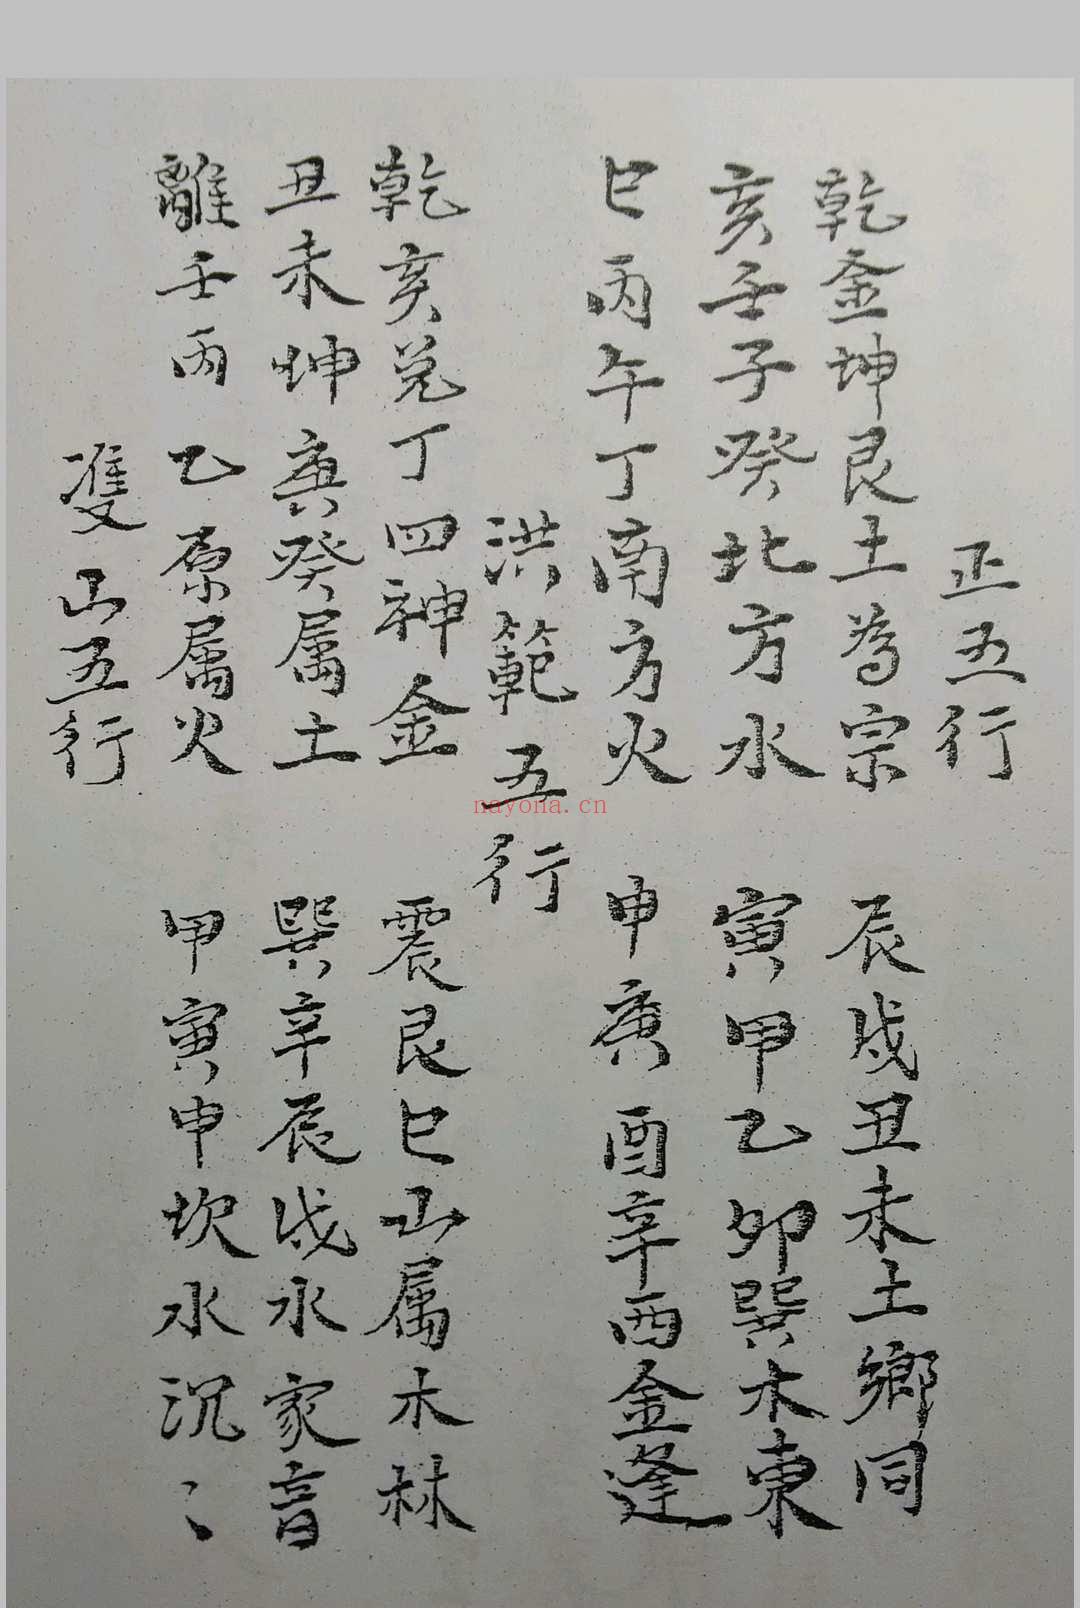 正五行
乾金坤艮土為宗 辰戌丑未土鄉同
亥壬子癸北方水 寅甲乙卯巽木東
巳丙午丁南方火 申庚酉辛西金逢
洪範五行
乾亥兌丁四神金 震艮巳山属木林
丑未坤庚癸属土 巽辛辰戌水家音
離壬丙乙原属火 甲寅申坎水沉〻
雙山五行
nayona.cn